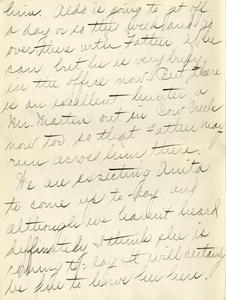 him. Aldo is going to get off
a day or so this week and go
over there with Father if he
can, but he is very busy
in the office now. But, there
is an excellent hunter a
Mr. Martin out in Cow Creek
now too so that Father may
run across him there.
We are expecting Anita
to come up to-day and
although we haven't heard
definitely I think she is
coming to-day. It will certainly
be fine to have her here.